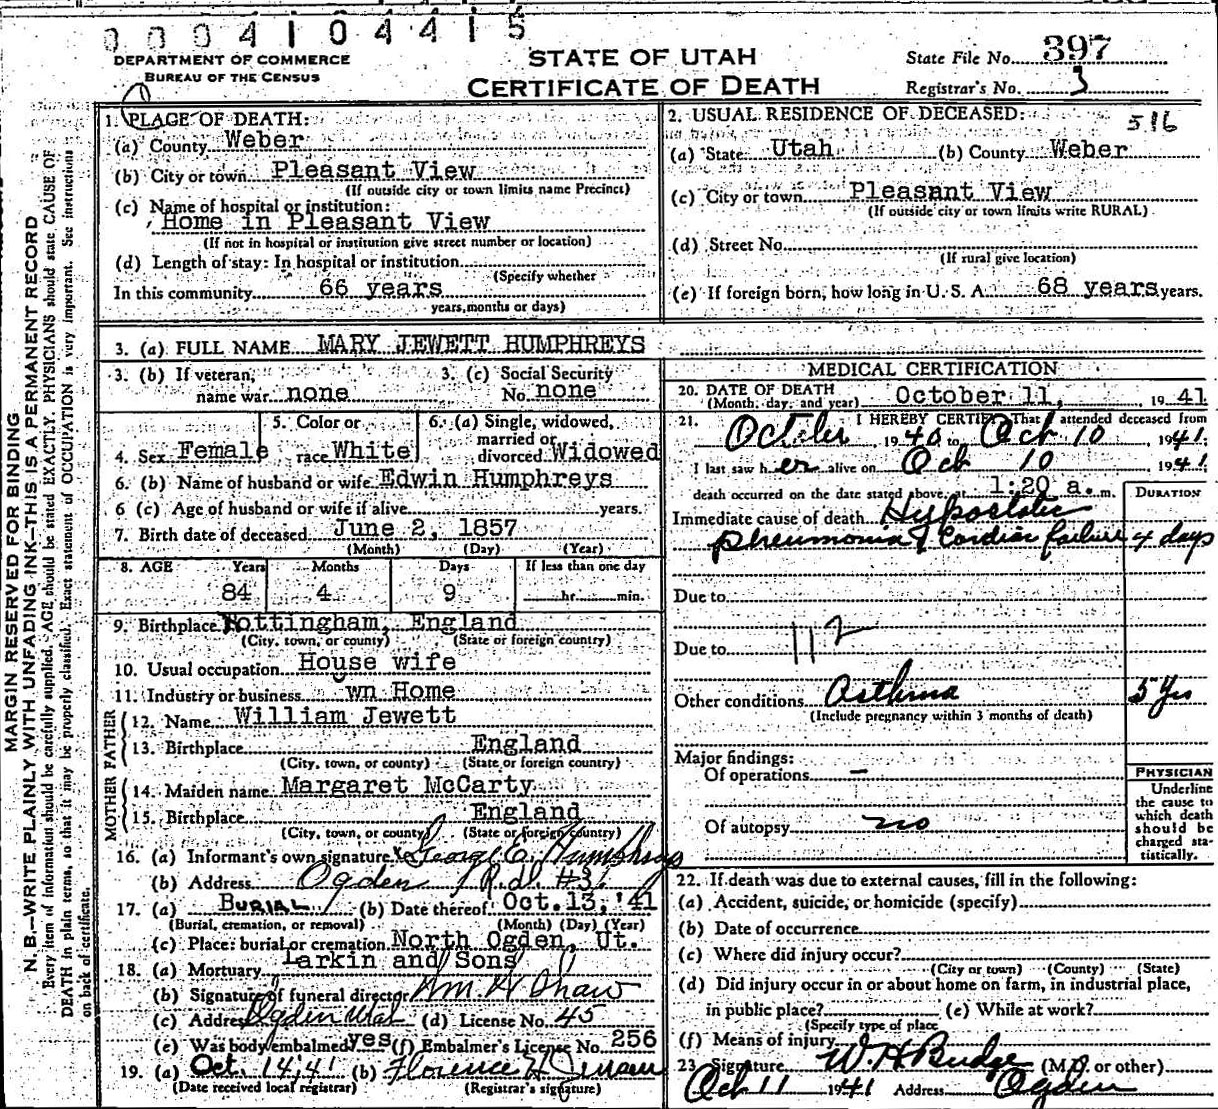 0004104415
DEPARTMENT OF COMMERCE
BUREAU OF THE CENSUS
STATE OF UTAH
CERTIFICATE OF DEATH
State File No. 397
Registrar's No. 3
MARGIN RESERVED FOR BINDING
N. B.—WRITE PLAINLY WITH UNFADING INK—THIS IS A PERMANENT RECORD
Every item of information should be carefully supplied. AGE should be stated EXACTLY. PHYSICIANS should state CAUSE OF
DEATH in plain terms, so that it may be properly classified. Exact statement of OCCUPATION is very important. See instructions
on back of certificate.
1. PLACE OF DEATH:
(a) County Weber
(b) City or town Pleasant View
(If outside city or town limits name Precinct)
(c) Name of hospital or institution:
Home in Pleasant View
(If not in hospital or institution give street number or location)
(d) Length of stay: In hospital or institution
(Specify whether
In this community 66 years
years, months or days)
2. USUAL RESIDENCE OF DECEASED: 516
(a) State Utah (b) County Weber
(c) City or town Pleasant View
(If outside city or town limits write RURAL)
(d) Street No.
(If rural give location)
(e) If foreign born, how long in U. S. A. 68 years years.
3. (a) FULL NAME MARY JEWETT HUMPHREYS
3. (b) If veteran, name war none
3. (c) Social Security No. none
4. Sex Female
5. Color or race White
6. (a) Single, widowed, married or divorced Widowed
6. (b) Name of husband or wife Edwin Humphreys
6 (c) Age of husband or wife if alive years.
7. Birth date of deceased June 2, 1857
(Month) (Day) (Year)
8. AGE Years Months Days If less than one day
84 4 9 hr. min.
9. Birthplace Nottingham, England
(City, town, or county) (State or foreign country)
10. Usual occupation House wife
11. Industry or business Own Home
FATHER
12. Name William Jewett
13. Birthplace England
(City, town, or county) (State or foreign country)
MOTHER
14. Maiden name Margaret McCarty
15. Birthplace England
(City, town, or county) (State or foreign country)
16. (a) Informant's own signature x George E. Humphreys
(b) Address Ogden R.d. #3
17. (a) BURIAL (b) Date thereof Oct. 13, '41
(Burial, cremation, or removal) (Month) (Day) (Year)
(c) Place: burial or cremation North Ogden, Ut.
18. (a) Mortuary Larkin and Sons
(b) Signature of funeral director Wm. H Shaw
(c) Address Ogden Utah (d) License No. 45
(e) Was body embalmed? yes (f) Embalmer's License No. 256
19. (a) Oct. 14, 41 (b) Florence H
(Date received local registrar) (Registrar's signature)
MEDICAL CERTIFICATION
20. DATE OF DEATH
(Month, day, and year) October 11, 1941
21. I HEREBY CERTIFY, That I attended deceased from
October 1940 to Oct 10 1941
I last saw her alive on Oct 10 1941
death occurred on the date stated above, at 1:20 a. m.
DURATION
Immediate cause of death Hypostatic
pneumonia & Cardiac failure 4 days
Due to
112
Due to
Other conditions Asthma 5 Yrs
(Include pregnancy within 3 months of death)
Major findings:
Of operations –
Of autopsy no
PHYSICIAN
Underline
the cause to
which death
should be
charged sta-
tistically.
22. If death was due to external causes, fill in the following:
(a) Accident, suicide, or homicide (specify)
(b) Date of occurrence
(c) Where did injury occur?
(City or town) (County) (State)
(d) Did injury occur in or about home on farm, in industrial place,
in public place? (e) While at work?
(Specify type of place
(f) Means of injury
23. Signature W. H. Budge (M.D. or other)
Oct 11 1941 Address Ogden